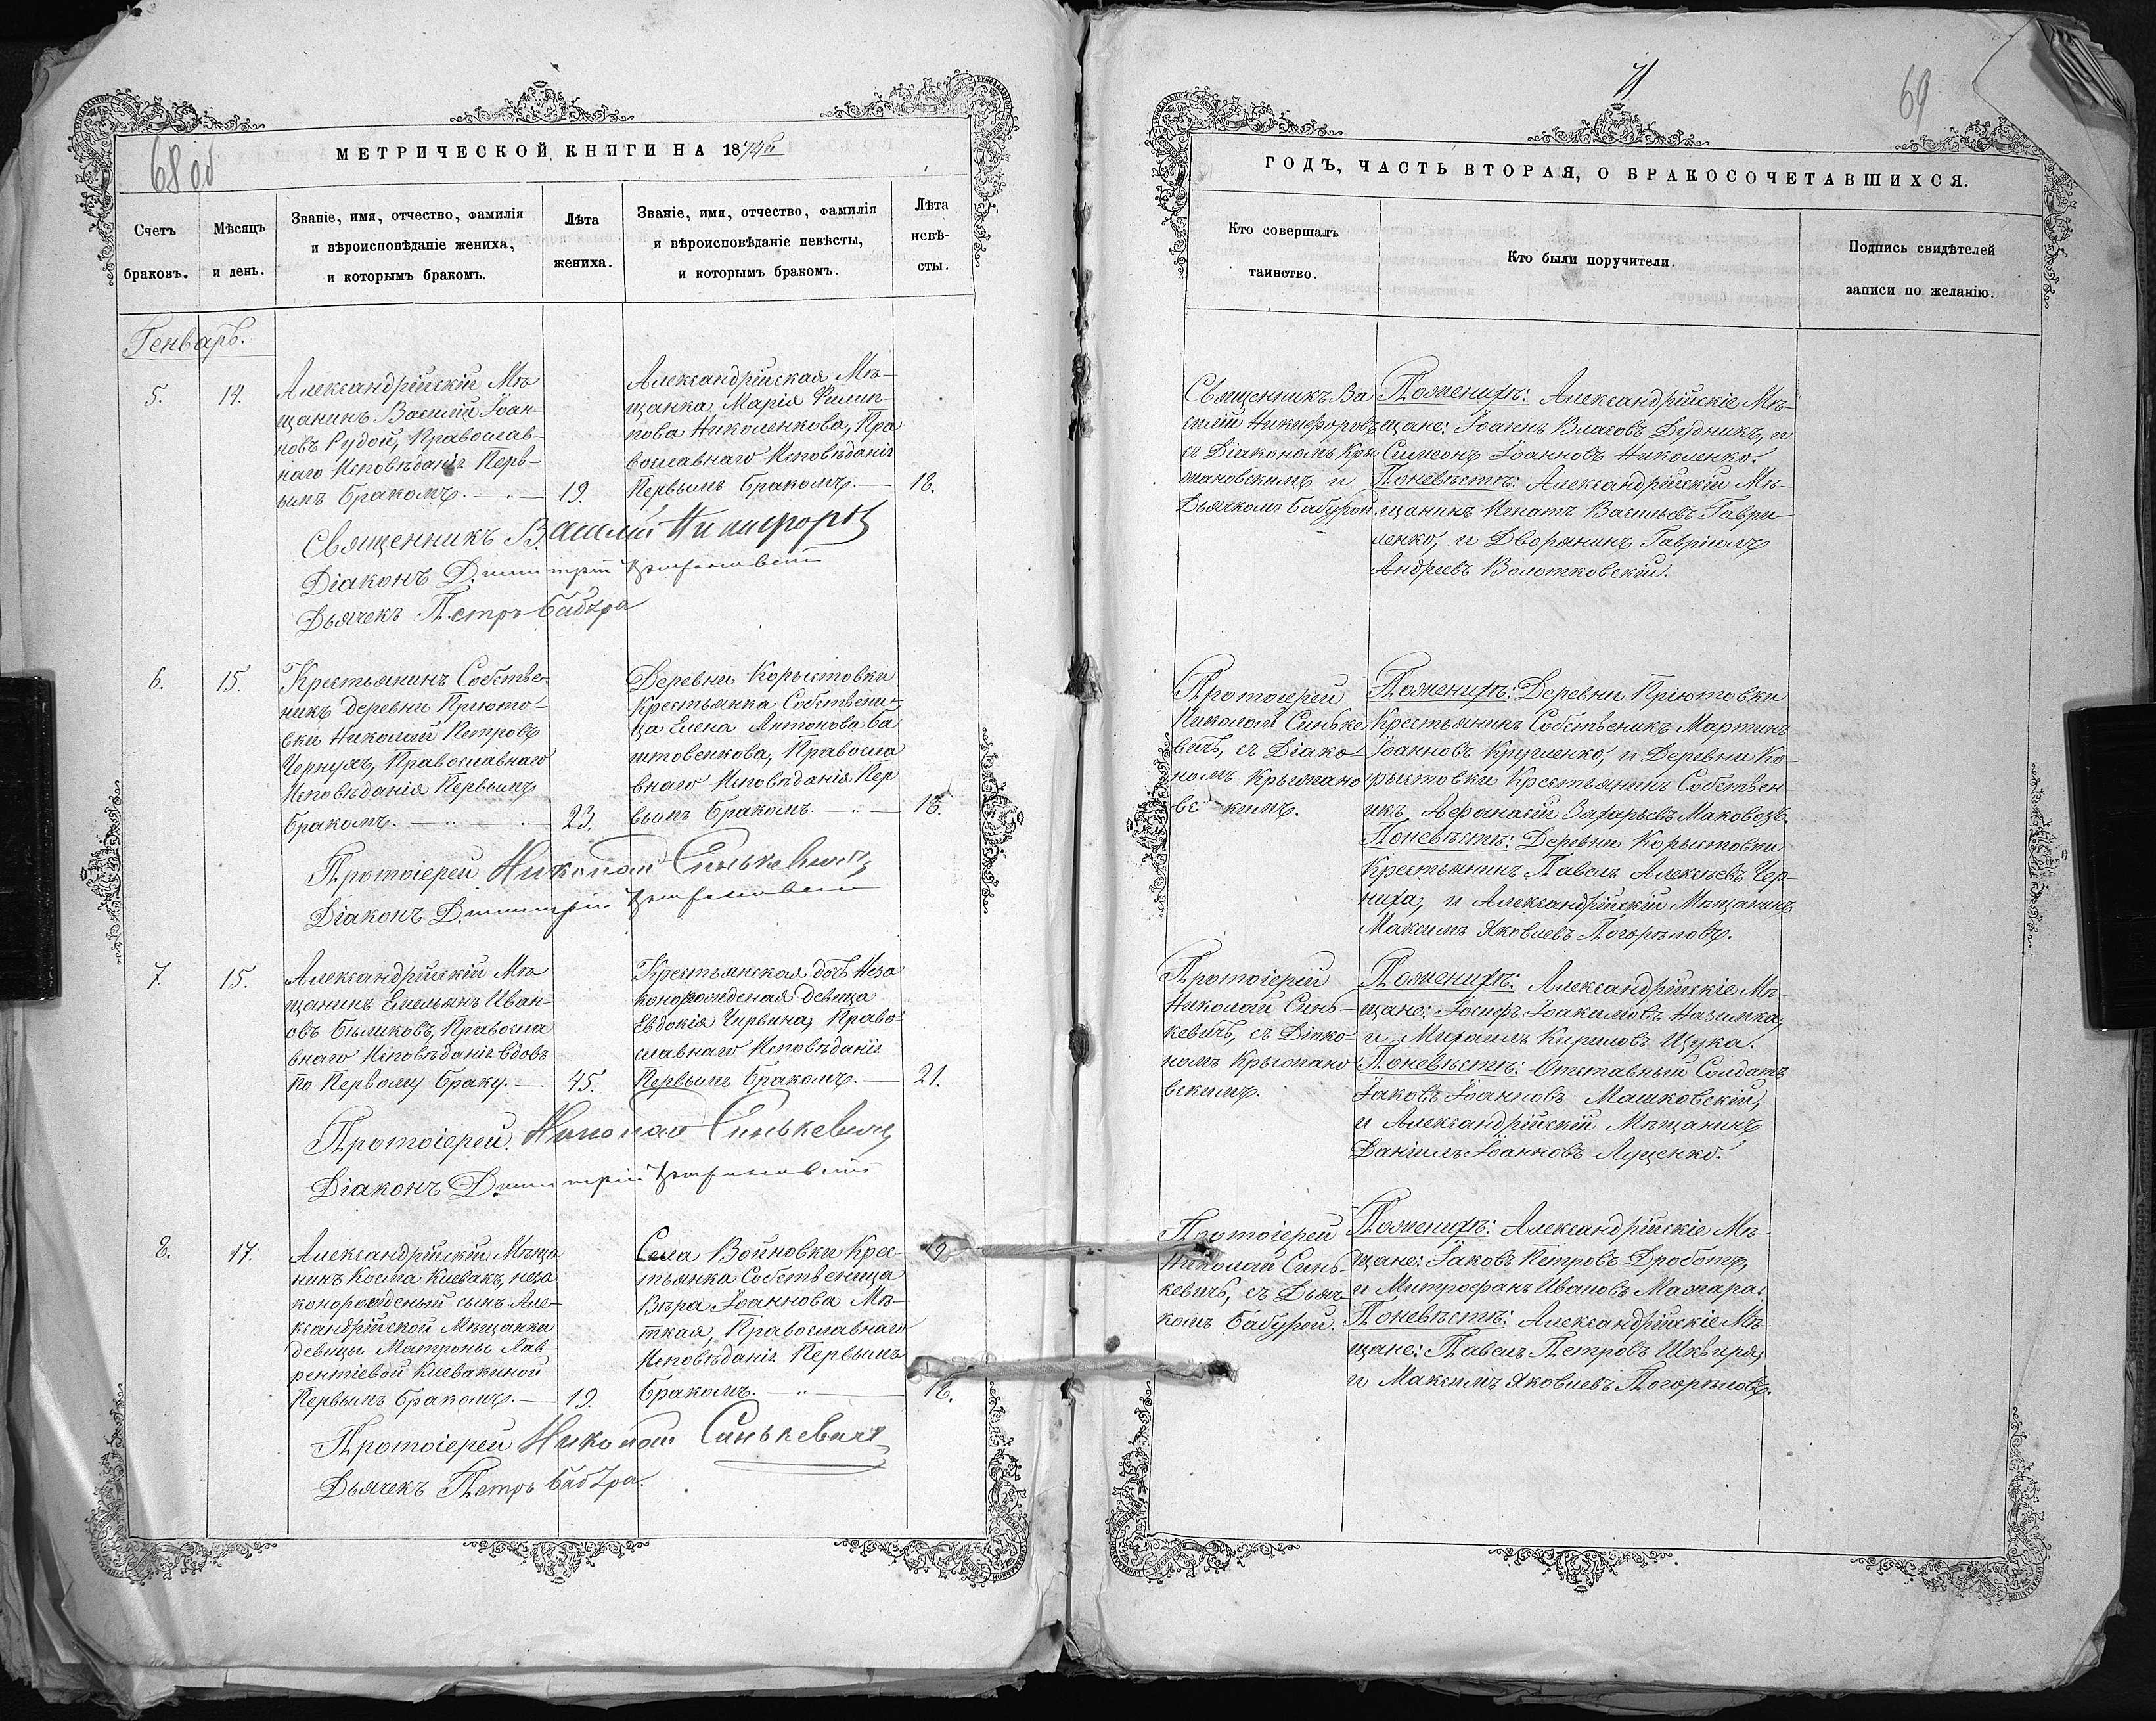 68 об
МЕТРИЧЕСКОЙ КНИГИ НА 1874й
Счетъ браковъ.
Мѣсяцъ и день.
Званіе, имя, отчество, фамилія
и вѣроисповѣданіе жениха,
и которымъ бракомъ.
Лѣта
жениха.
Званіе, имя, отчество, фамилія
и вѣроисповѣданіе невѣсты,
и которымъ бракомъ.
Лѣта
невѣ-
сты.
Генварь.
5.
14.
Александрійскій Мѣ
щанинъ Василій Іоан-
новъ Рудой, Православ-
наго Исповѣданія Перв-
ымъ бракомъ.
19.
Александрійская Мѣ-
щанка Марія Филип-
пова Николенкова, Пра
вославнаго Исповѣданія
Первымъ бракомъ.
18.
Священникъ Василій Никифоровъ
Діаконъ Димитрій Крыжановскій
Дьячекъ Петръ Бабура
6.
15.
Крестьянинъ Собстве-
никъ деревни Пріюто-
вки Николай Петровъ
Чернухъ, Православнаго
Исповѣданія Первымъ
бракомъ.
23.
Деревни Корыстовки
Крестьянка Собствени-
ца Елена Антонова Ба
штовенкова, Правосла
внаго Исповѣданія Пер
вымъ бракомъ
18.
Протоіерей Николай Синькевичъ
Діаконъ Димитрій Крыжановскій
7.
15.
Александрійскій Мѣ
щанинъ Емельянъ Иван-
овъ Бѣликовъ, Правосла
внаго Исповѣданія вдовъ
по Первому браку.
45.
Крестьянская дочь Неза
конорожденая девица
Евдокія Чирвина, Право
славнаго Исповѣданія
Первымъ бракомъ.
21.
Протоіерей Николай Синькевичъ
Діаконъ Димитрій Крыжановскій
8.
17.
Александрійскій Мѣща
нинъ Косма Киевакъ, неза
конорожденый сынъ Але-
ксандрійской Мѣщанки
девицы Матроны Лав-
рентіевой Киевакиной
Первымъ бракомъ.
19.
Села Войновки Крес-
тьянка Собственица
Вѣра Іоаннова Мѣ-
ткая, Православнаго
Исповѣданія Первымъ
бракомъ.
18.
Протоіерей Николай Синькевичъ
Дьячекъ Петръ Бабура.
69
ГОДЪ, ЧАСТЬ ВТОРАЯ, О БРАКОСОЧЕТАВШИХСЯ.
Кто совершалъ
таинство.
Кто были поручители.
Подпись свидѣтелей
записи по желанію.
Священникъ Ва
силій Никифоровъ
съ Діакономъ Кры
жановскимъ и
Дьячкомъ Бабурой.
По женихѣ: Александрійскіе Мѣ-
щане: Іоаннъ Власовъ Дудникъ, и
Симеонъ Іоанновъ Николенко.
По невѣстѣ: Александрійскій Мѣ-
щанинъ Игнатъ Васильевъ Гаври
ленко, и Дворянинъ Гавріилъ
Андреевъ Волотковскій.
Протоіерей
Николай Синьке
вичъ, съ Діако
номъ Крыжано
вскимъ.
По женихѣ: Деревни Пріютовки
Крестьянинъ Собственикъ Мартинъ
Іоанновъ Кругленко, и Деревни Ко-
рыстовки Крестьянинъ Собствен-
икъ Афанасій Захарьевъ Маковозъ.
По невѣстѣ: Деревни Корыстовки
Крестьянинъ Павелъ Алексѣевъ Чер-
ниха, и Александрійскій Мѣщанинъ
Максимъ Яковлевъ Погорѣловъ.
Протоіерей
Николай Синь-
кевичъ, съ Діако
номъ Крыжано
вскимъ.
По женихѣ: Александрійскіе Мѣ-
щане: Іосифъ Іоакимовъ Назимка,
и Михаилъ Кириловъ Щука.
По невѣстѣ: Отставный Солдатъ
Іаковъ Іоанновъ Машковскій,
и Александрійскій Мѣщанинъ
Даніилъ Іоанновъ Луценко.
Протоіерей
Николай Синь-
кевичъ, съ Дьяч-
комъ Бабурой.
По женихѣ: Александрійскіе Мѣ-
щане: Іаковъ Петровъ Дроботъ,
и Митрофанъ Ивановъ Мажара.
По невѣстѣ: Александрійскіе Мѣ-
щане: Павелъ Петровъ Шквиря,
и Максимъ Яковлевъ Погорѣловъ.